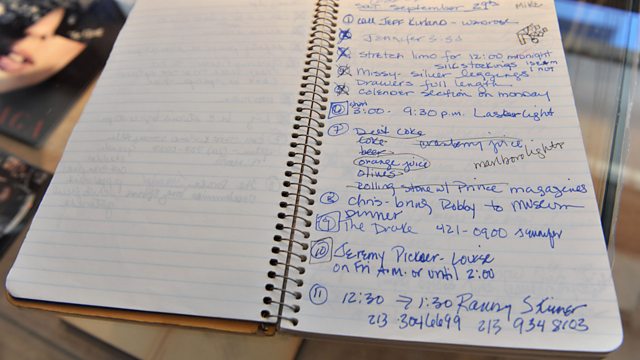 Sat September 29th
Mike
① Call Jeff Kirland -
Jennifer 3-5d
stretch limo for 12:00 midnight
silk stockings
Missy - silver leggings
Drawers full length
Calendar section on Monday
3:00 - 9:30 p.m. Laster light
⑦ Diet Coke
Coke cranberry juice
beer
orange juice marlboro lights
olives
rolling stone w/ Prince magazines
⑧ Chris - bring Robby to museum
Dinner
⑨ The Drake 421-0900 Jennifer
⑩ Jeremy Pickser - Louise
on Fri A.M. or until 2:00
⑪ 12:30 → 1:30 Randy Skinner
213 3046699 213 934 8103